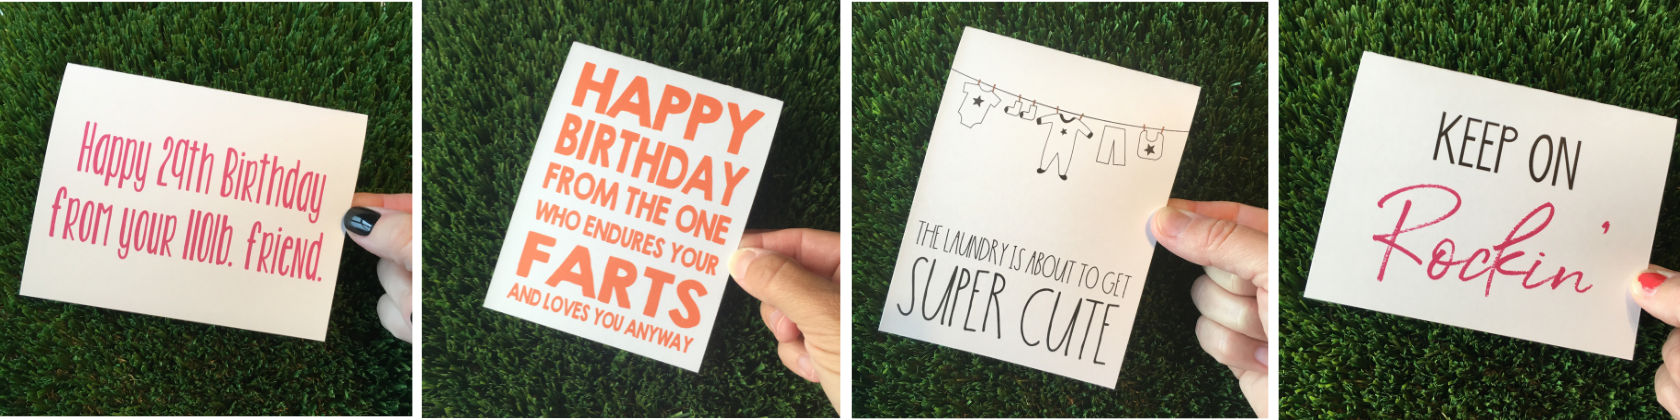 Happy 29th Birthday
from your 110lb. friend.
HAPPY
BIRTHDAY
FROM THE ONE
WHO ENDURES YOUR
FARTS
AND LOVES YOU ANYWAY
THE LAUNDRY IS ABOUT TO GET
SUPER CUTE
KEEP ON
Rockin'